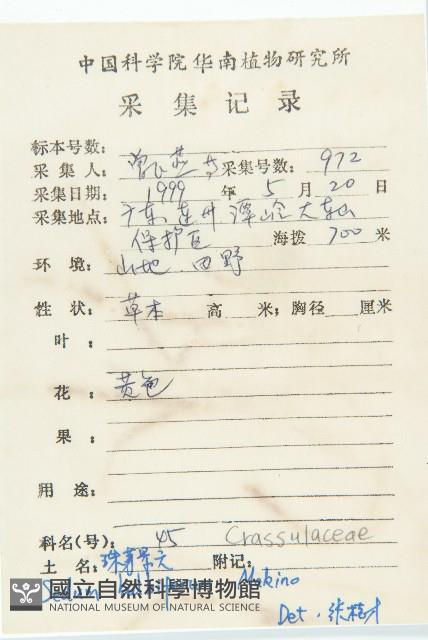 中国科学院华南植物研究所
采集记录
标本号数：
采集人：曾飞燕等 采集号数：972
采集日期：1999 年 5 月 20 日
采集地点：广东 连州 潭岭 大东山
保护区 海拨 700 米
环境：山地 田野
性状：草本 高 米；胸径 厘米
叶：
花：黄色
果：
用途：
科名(号)：45 Crassulaceae
土名：珠芽景天 附记：
Sedum Makino
國立自然科學博物館
NATIONAL MUSEUM OF NATURAL SCIENCE
Det.